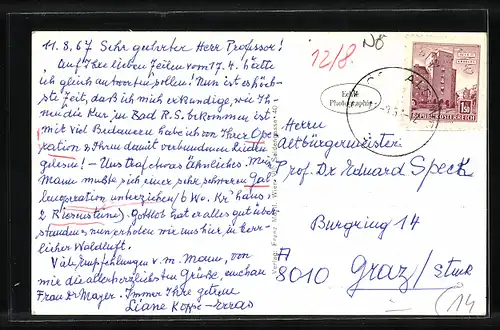 11.8.67 Sehr geehrter Herr Professor!
Auf Ihre lieben Zeilen vom 17.4. hätte
ich gleich antworten sollen! Nun ist es höch-
ste Zeit, daß ich mich erkundige wie Ih-
nen die Kur in Bad R.S. bekommen ist
mit viel Bedauern habe ich von Ihrer Ope-
ration u. Ihrem damit verbundenen Leiden
gelesen! – Uns traf etwas Ähnliches. Mein
Mann mußte sich einer sehr schweren Gal-
lenoperation unterziehen (6 Wo. Kr'haus,
2 Riesensteine). Gottlob hat er alles gut über-
standen, nun erholen wir uns hier in herr-
licher Waldluft.
Viele Empfehlungen v. m. Mann, von
mir die allerherzlichsten Grüße, auch an
Frau Dr Mayer. Immer Ihre getreue
Liane
12/8.
NÖ
Echte
Photographie
Verlag: Franz
1.50
REPUBLIK ÖSTERREICH
Herrn
Altbürgermeister
Prof. Dr. Eduard Speck
Burgring 14
A
8010 Graz / Stmk
14